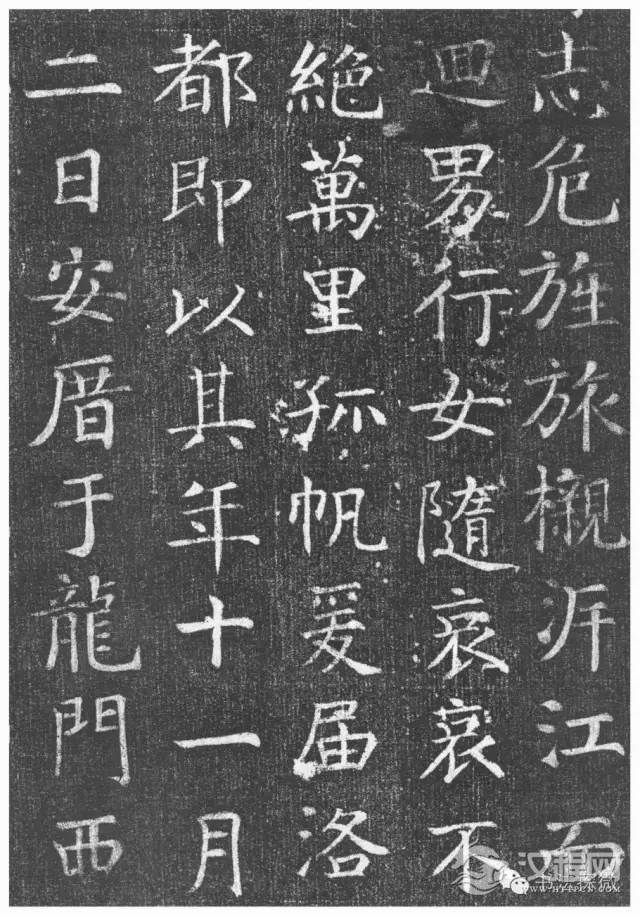 志危旌旅櫬泝江而
迴男行女隨哀哀不
絕萬里孤帆爰届洛
都即以其年十一月
二日安厝于龍門西
汉程网